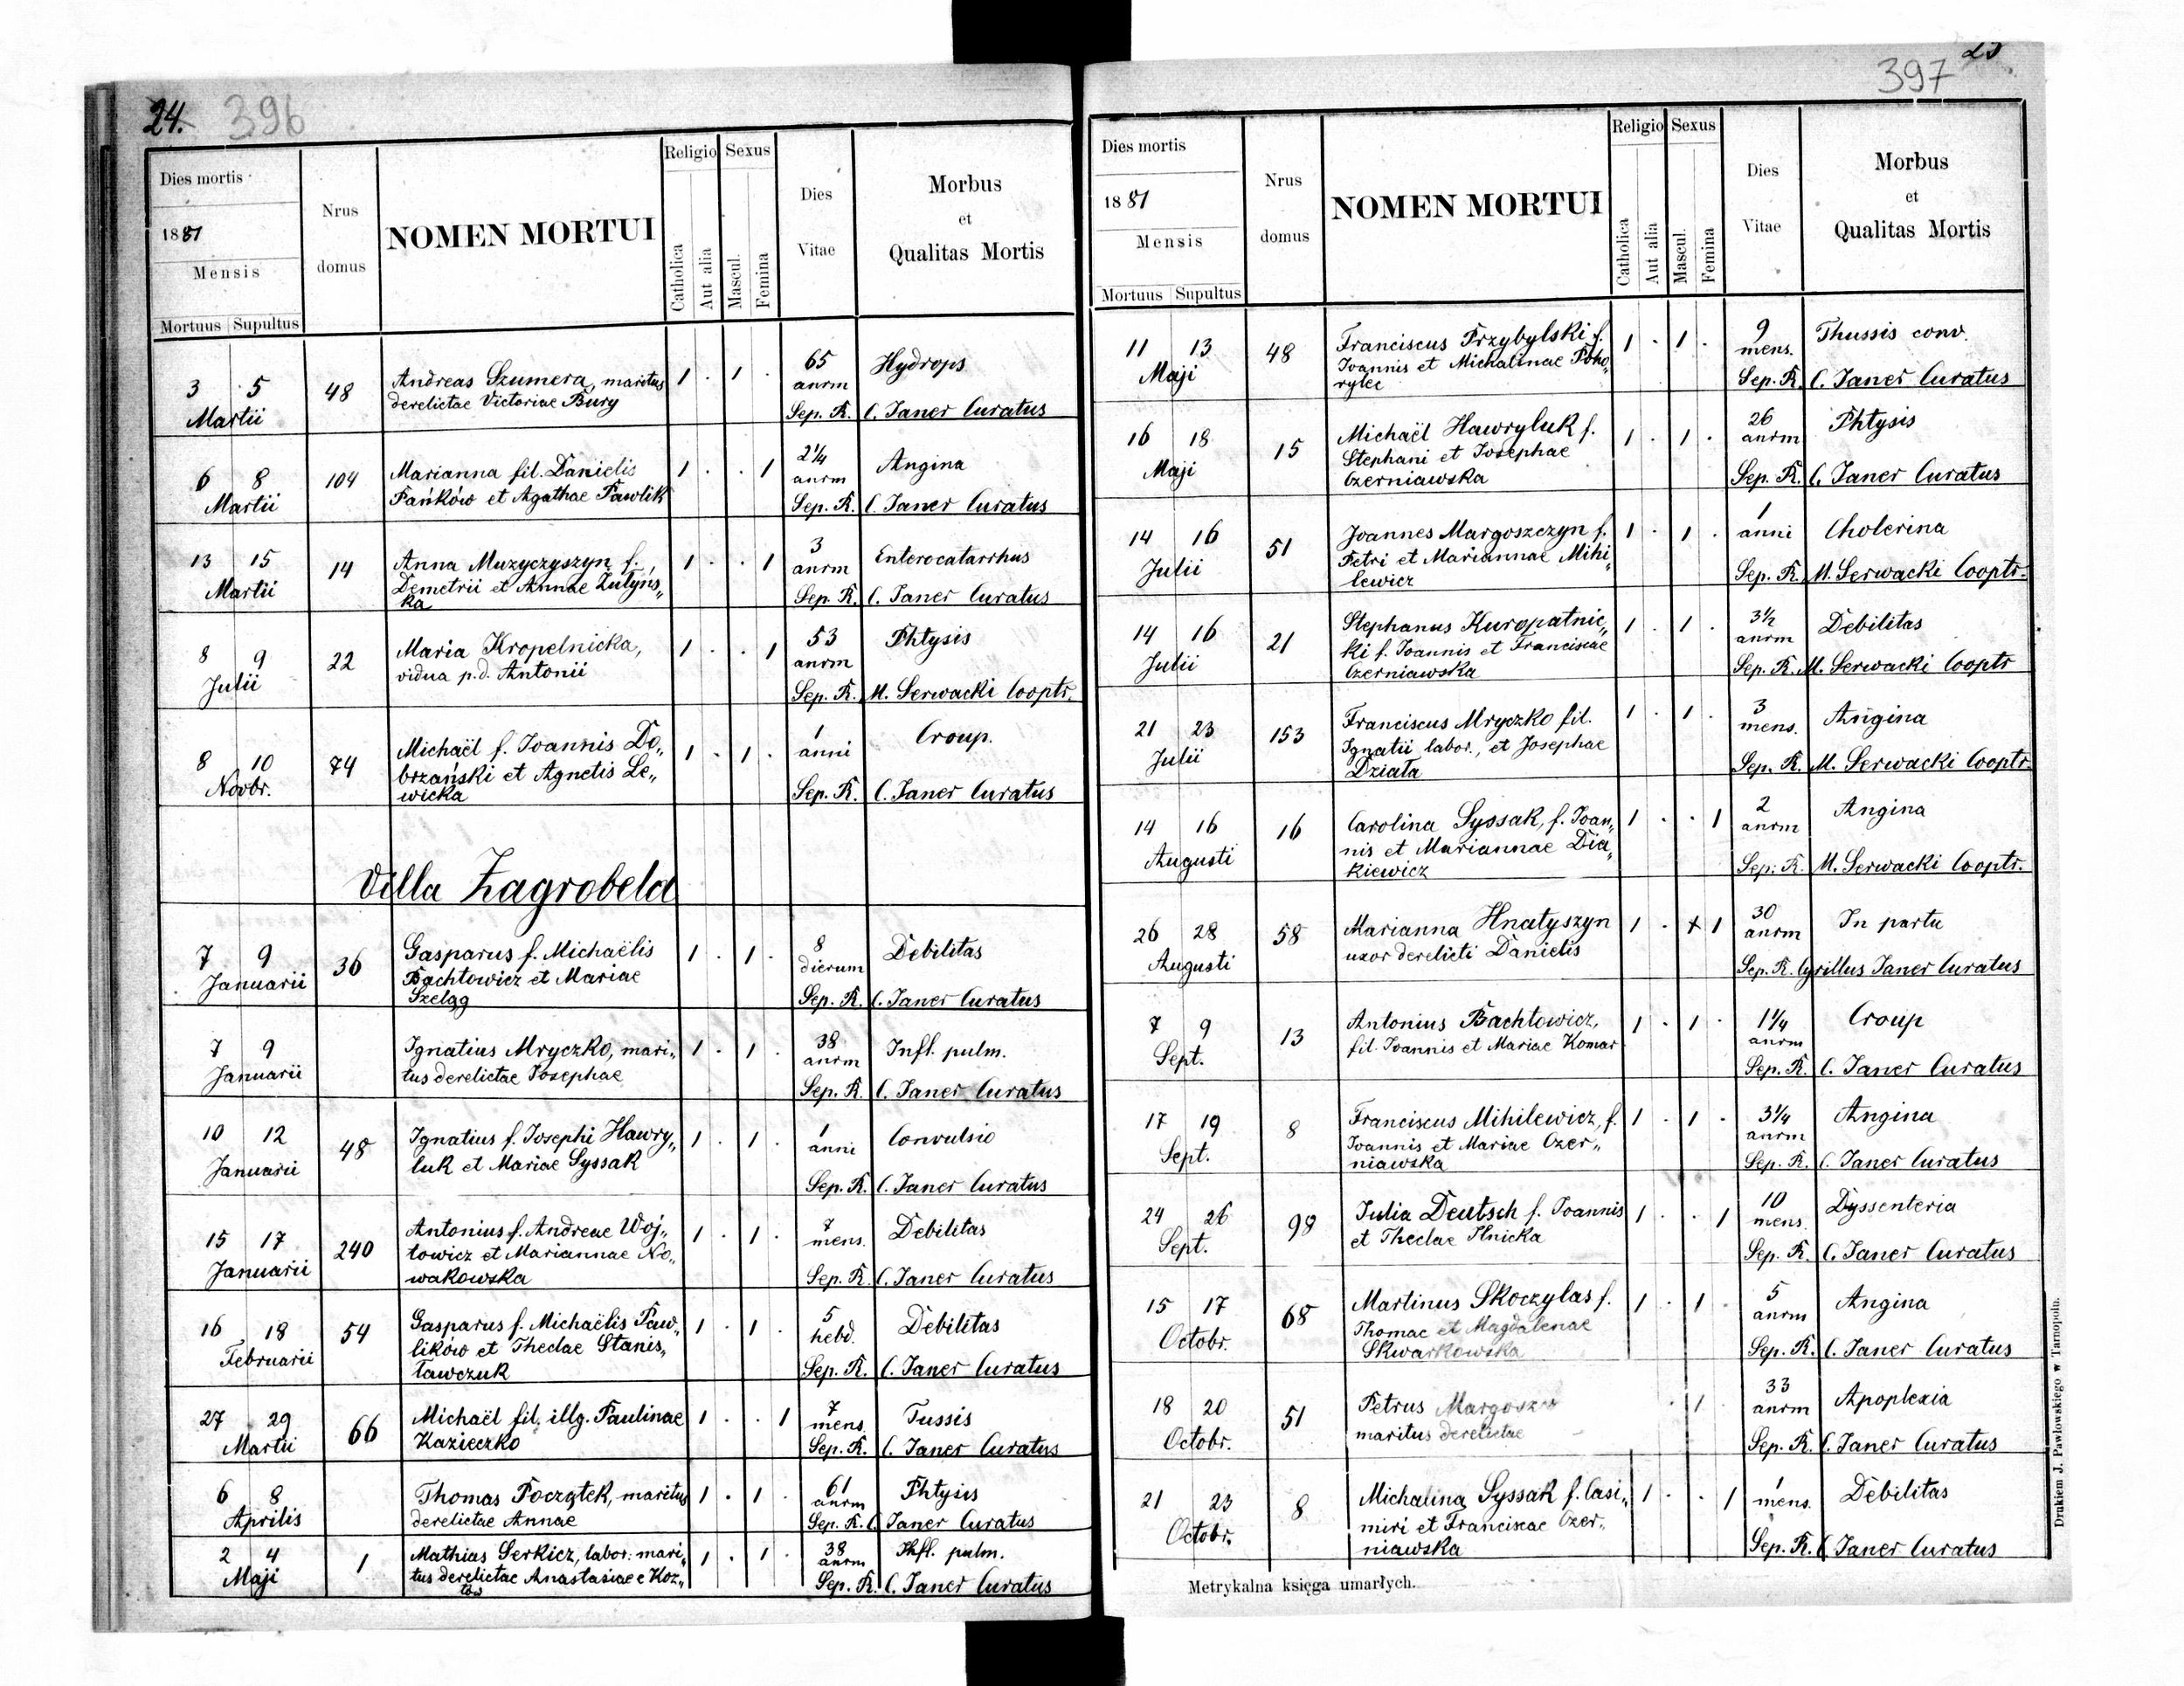 24. 396
Dies mortis
1881
Mensis
Mortuus Supultus
Nrus
domus
NOMEN MORTUI
Religio
Catholica
Aut alia
Sexus
Mascul.
Femina
Dies
Vitae
Morbus
et
Qualitas Mortis
3 5
Martii
48
Andreas Szumera, maritus
derelictae Victoriae Bury
1 . 1 .
65
anrm
Hydrops
Sep. R. C. Janer Curatus
6 8
Martii
104
Marianna fil. Danielis
Pańków et Agathae Pawlik
1 . . 1
2 1/4
anrm
Angina
Sep. R. C. Janer Curatus
13 15
Martii
14
Anna Muzyczyszyn f.
Demetrii et Annae Żułyńs„
ka
1 . . 1
3
anrm
Enterocatarrhus
Sep. R. C. Janer Curatus
8 9
Julii
22
Maria Kropelnicka,
vidua p.d. Antonii
1 . . 1
53
anrm
Phtysis
Sep. R. M. Serwacki Cooptr.
8 10
Novbr.
74
Michaël f. Joannis Do„
brzański et Agnetis Le„
wicka
1 . 1 .
1
anni
Croup.
Sep. R. C. Janer Curatus
Villa Zagrobela
7 9
Januarii
36
Gasparus f. Michaëlis
Bachtowicz et Mariae
Szeląg
1 . 1 .
8
dierum
Debilitas
Sep. R. C. Janer Curatus
7 9
Januarii
Ignatius Mryczko, mari„
tus derelictae Josephae
1 . 1 .
38
anrm
Infl. pulm.
Sep. R. C. Janer Curatus
10 12
Januarii
48
Ignatius f. Josephi Hawry„
luk et Mariae Syssak
1 . 1 .
1
anni
Convulsio
Sep. R. C. Janer Curatus
15 17
Januarii
240
Antonius f. Andreae Woj„
towicz et Mariannae No„
wakowska
1 . 1 .
7
mens.
Debilitas
Sep. R. C. Janer Curatus
16 18
Februarii
54
Gasparus f. Michaëlis Paw„
lików et Theclae Stanis„
ławczuk
1 . 1 .
5
hebd.
Debilitas
Sep. R. C. Janer Curatus
27 29
Martii
66
Michaël fil. illg. Paulinae
Kazieczko
1 . . 1
7
mens.
Tussis
Sep. R. C. Janer Curatus
6 8
Aprilis
Thomas Początek, maritus
derelictae Annae
1 . 1 .
61
anrm
Phtysis
Sep. R. C. Janer Curatus
2 4
Maji
1
Mathias Serkicz, labor. mari„
tus derelictae Anastasiae e Koz„
łów
1 . 1 .
38
anrm
Infl. pulm.
Sep. R. C. Janer Curatus
397 25
Dies mortis
1881
Mensis
Mortuus Supultus
Nrus
domus
NOMEN MORTUI
Religio
Catholica
Aut alia
Sexus
Mascul.
Femina
Dies
Vitae
Morbus
et
Qualitas Mortis
11 13
Maji
48
Franciscus Przybylski f.
Joannis et Michalinae Poho„
rylec
1 . 1 .
9
mens.
Thussis conv.
Sep. R. C. Janer Curatus
16 18
Maji
15
Michaël Hawryluk f.
Stephani et Josephae
Czerniawska
1 . 1 .
26
anrm
Phtysis
Sep. R. C. Janer Curatus
14 16
Julii
51
Joannes Margoszczyn f.
Petri et Mariannae Mihi„
lewicz
1 . 1 .
1
anni
Cholerina
Sep. R. M. Serwacki Cooptr.
14 16
Julii
21
Stephanus Kuropatnic„
ki f. Joannis et Franciscae
Czerniawska
1 . 1 .
3 1/2
anrm
Debilitas
Sep. R. M. Serwacki Cooptr
21 23
Julii
153
Franciscus Mryczko fil.
Ignatii labor., et Josephae
Działa
1 . 1 .
3
mens.
Angina
Sep. R. M. Serwacki Cooptr.
14 16
Augusti
16
Carolina Syssak, f. Joan„
nis et Mariannae Dia„
kiewicz
1 . . 1
2
anrm
Angina
Sep. R. M. Serwacki Cooptr.
26 28
Augusti
58
Marianna Hnatyszyn
uxor derelicti Danielis
1 . + 1
30
anrm
In partu
Sep. R. Cyrillus Janer Curatus
7 9
Sept.
13
Antonius Bachtowicz,
fil. Joannis et Mariae Komar
1 . 1 .
1 1/4
anrm
Croup
Sep. R. C. Janer Curatus
17 19
Sept.
8
Franciscus Mihilewicz, f.
Joannis et Mariae Czer„
niawska
1 . 1 .
3 1/4
anrm
Angina
Sep. R. C. Janer Curatus
24 26
Sept.
98
Julia Deutsch f. Joannis
et Theclae Hnicka
1 . . 1
10
mens.
Dyssenteria
Sep. R. C. Janer Curatus
15 17
Octobr.
68
Martinus Skoczylas f.
Thomae et Magdalenae
Skwarkowska
1 . 1 .
5
anrm
Angina
Sep. R. C. Janer Curatus
18 20
Octobr.
51
Petrus
maritus derelictae
. 1 .
33
anrm
Apoplexia
Sep. R. C. Janer Curatus
21 23
Octobr.
8
Michalina Syssak f. Casi„
miri et Franciscae Czer„
niawska
1 . . 1
1
mens.
Debilitas
Sep. R. C. Janer Curatus
Metrykalna księga umarłych.
Drukiem J. Pawłowskiego w Tarnopolu.